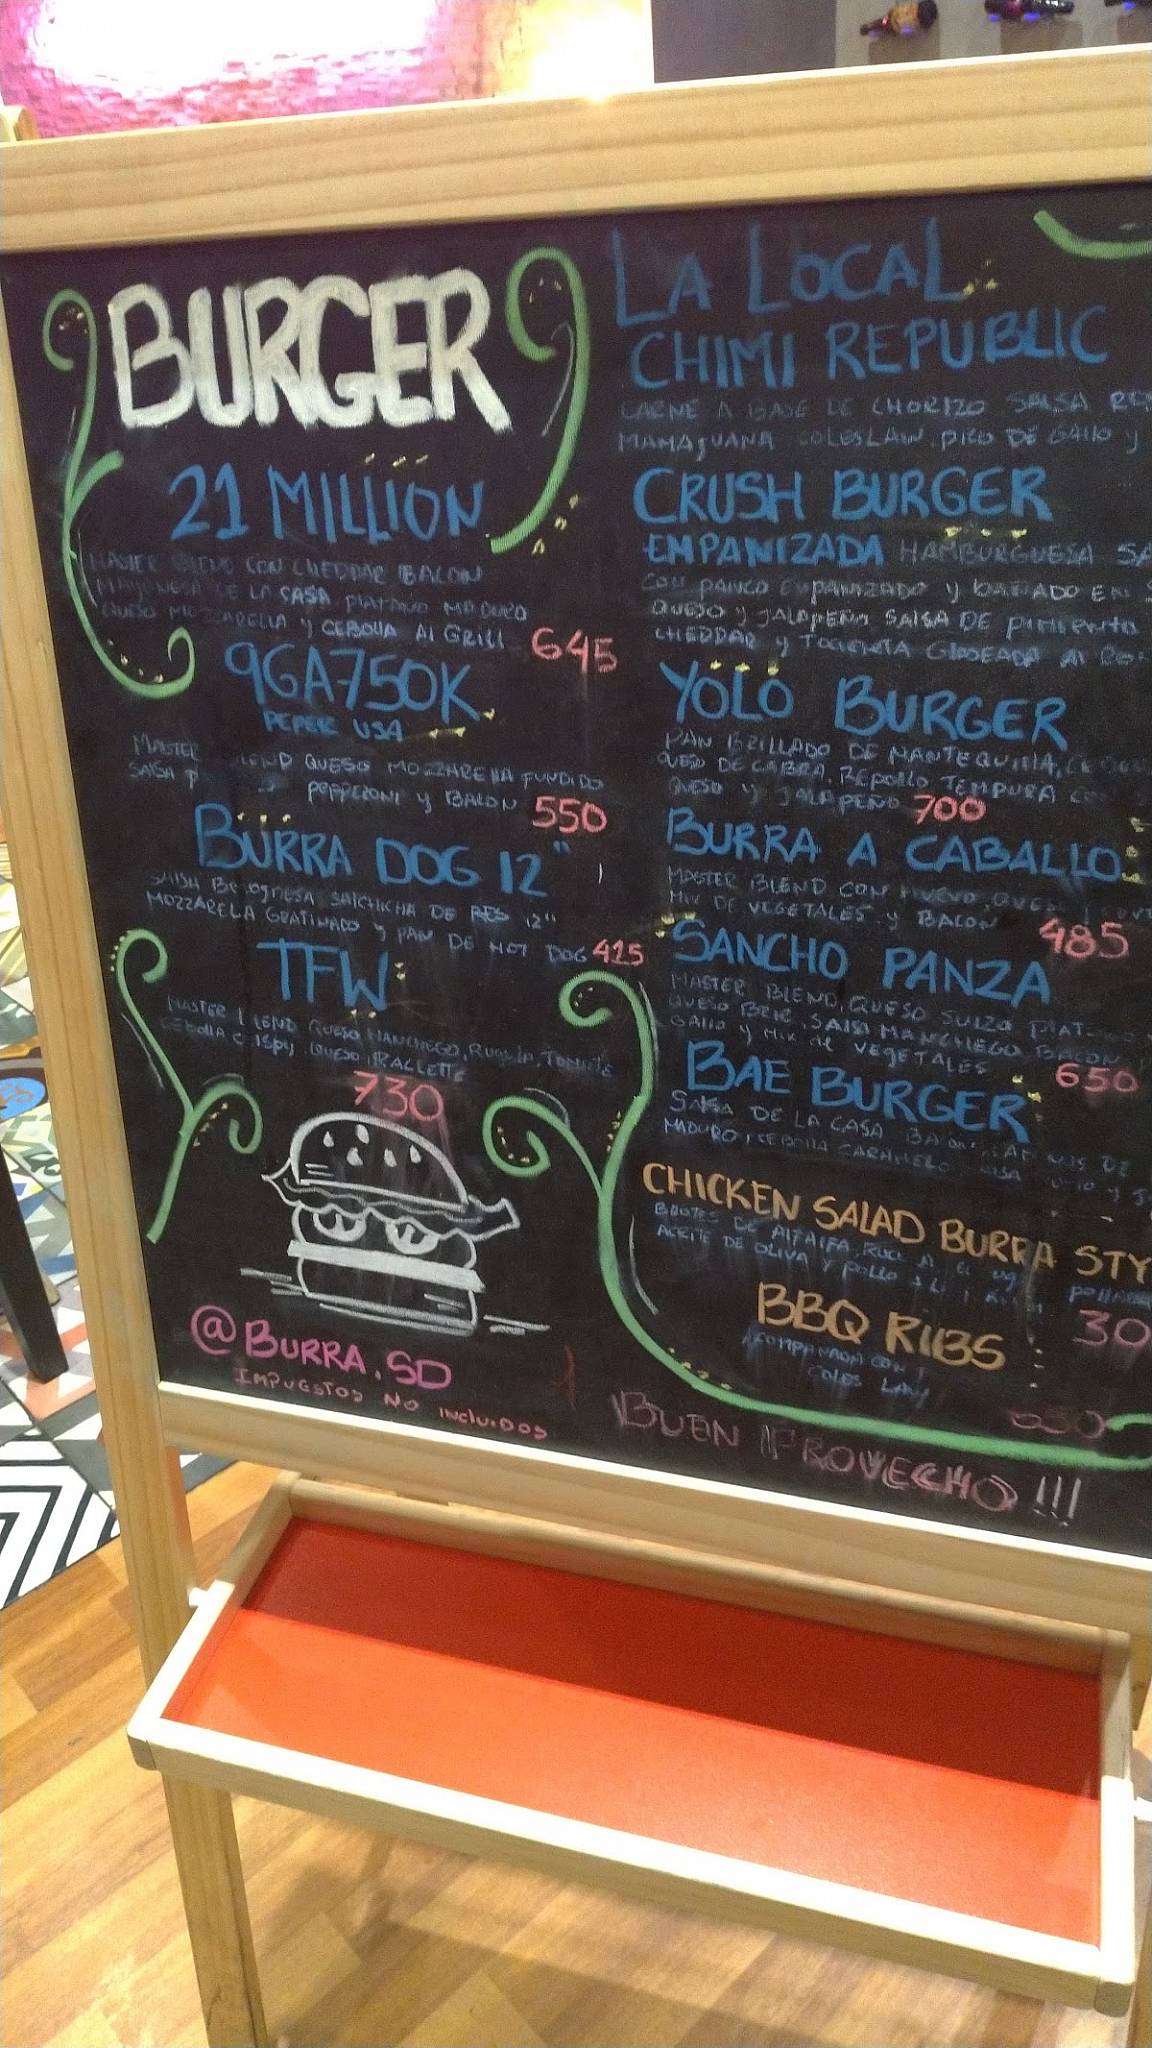 BURGER
21 MILLION
MASTER BLEND CON CHEDDAR BACON
MAYONESA DE LA CASA PLATANO MADURO
QUESO MOZZARELLA Y CEBOLLA AL GRILL 645
9GA750K
PEPER USA
MASTER BLEND QUESO MOZZARELLA FUNDIDO
SALSA PEPPERONI Y BACON 550
BURRA DOG 12"
SALSA BOLOGNESA SALCHICHA DE RES 12"
MOZZARELA GRATINADO Y PAN DE HOT DOG 415
TFW
MASTER BLEND QUESO MANCHEGO, RUGULA, TOMATE
CEBOLLA CRISPY, QUESO RACLETTE
730
@BURRA.SD
IMPUESTOS NO INCLUIDOS
LA LOCAL
CHIMI REPUBLIC
CARNE A BASE DE CHORIZO SALSA
MAMAJUANA COLESLAW, PICO DE GALLO Y
CRUSH BURGER
EMPANIZADA HAMBURGUESA
CON PANCO EMPANIZADO Y BAÑADO EN
QUESO Y JALAPEÑO SALSA DE PIMIENTO
CHEDDAR Y TOCINETA GLASEADA AL
YOLO BURGER
PAN BRILLADO DE MANTEQUILLA,
QUESO DE CABRA, REPOLLO TEMPURA
QUESO Y JALAPEÑO 700
BURRA A CABALLO
MASTER BLEND CON HUEVO, QUESO
MIX DE VEGETALES Y BACON 485
SANCHO PANZA
MASTER BLEND, QUESO SUIZO
QUESO BRIE, SALSA MANCHEGO BACON,
GALLO Y MIX de VEGETALES 650
BAE BURGER
SALSA DE LA CASA DE
MADURO CEBOLLA CARAMELO
CHICKEN SALAD BURRA
BROTES DE ALFALFA,
ACEITE DE OLIVA Y POLLO
BBQ RIBS
ACOMPAÑADA CON
COLES LAW
BUEN PROVECHO !!!